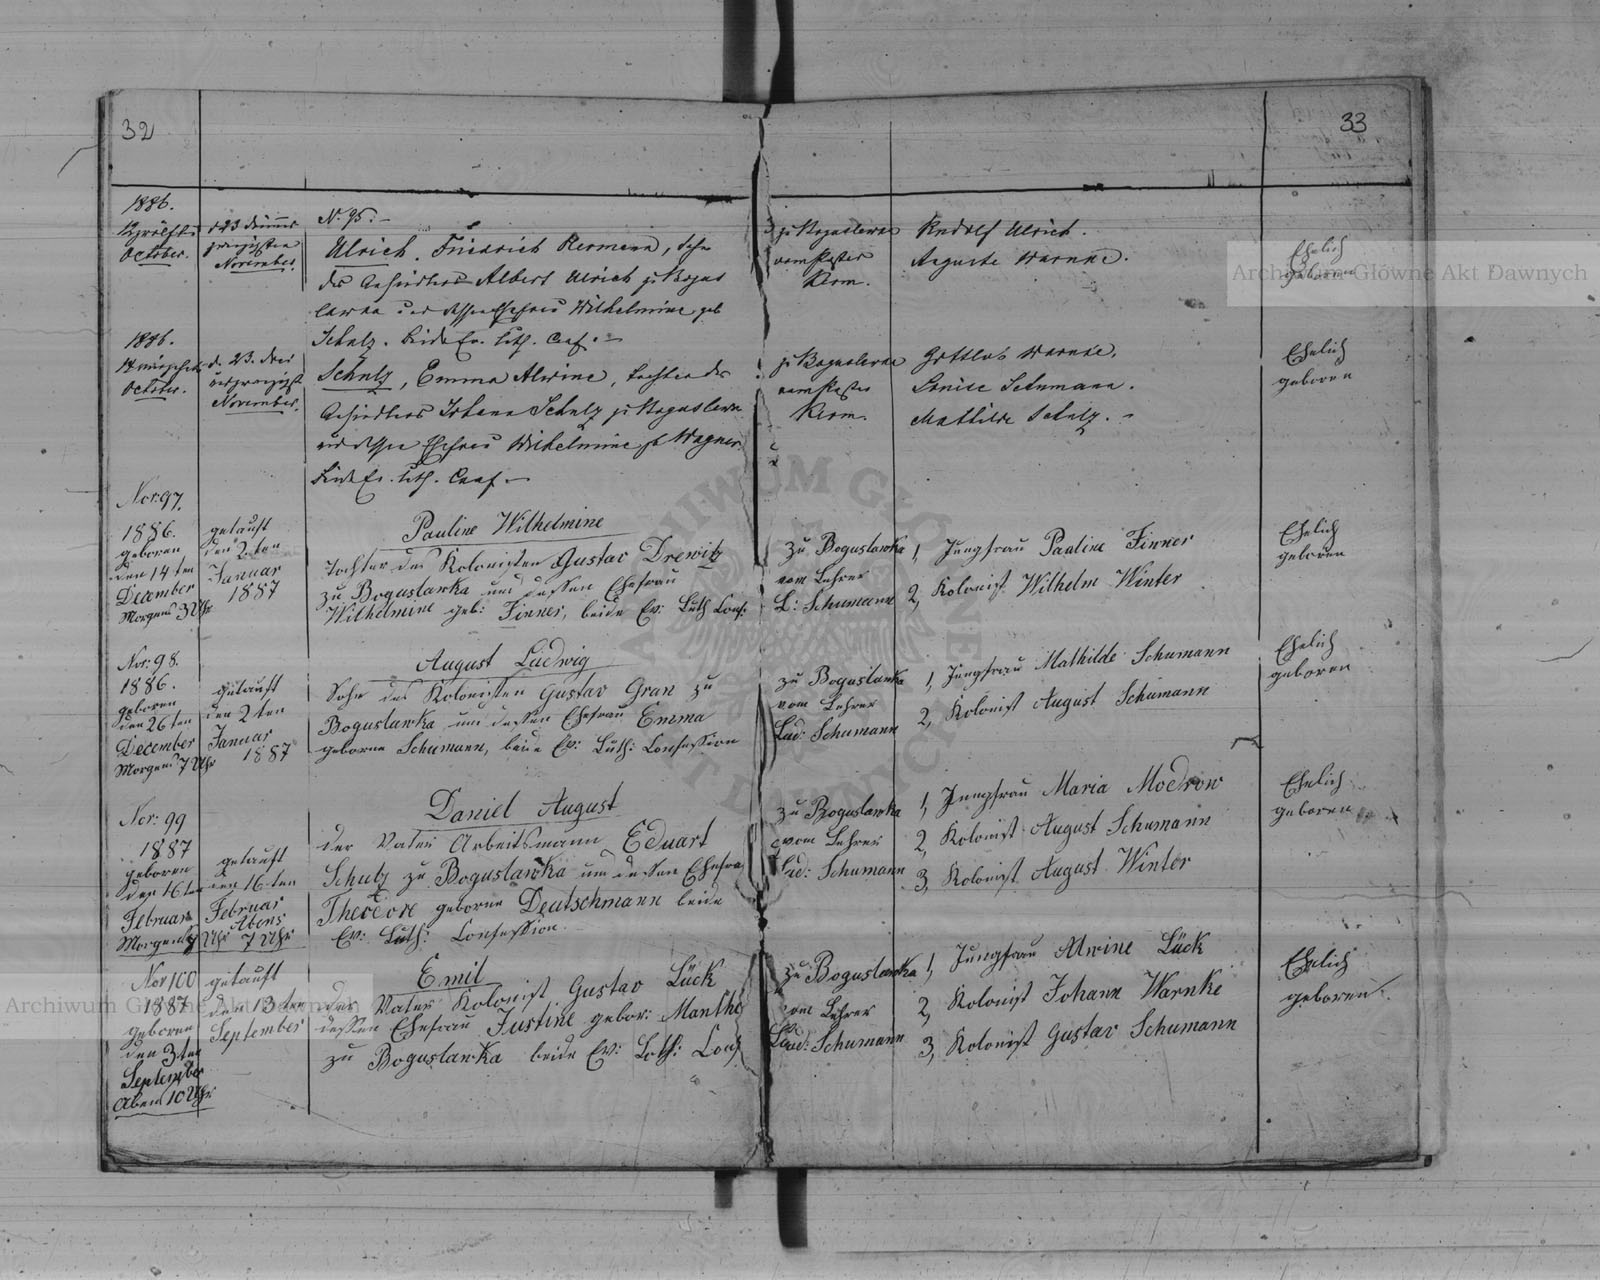 32
33
1886.
October.
d 23
November.
N. 95.
Ulrich. Friedrich Hermann, Sohn
des Ansiedlers Albert Ulrich zu Bogus
lawka und dessen Ehefrau Wilhelmine geb
Schulz. beide Ev. Luth. Conf.
zu Boguslawka
vom Pastor
Rudolf Ulrich.
Auguste Warnke.
Ehelich
geboren
1886.
October.
d. 23.
November.
Schulz, Emma Alwine, Tochter des
Ansiedlers Johann Schulz zu Boguslawka
und dessen Ehefrau Wilhelmine geb Wagner.
beide Ev. Luth. Conf.
zu Boguslawka
vom Pastor
Gottlieb Warnke.
Louise Schumann.
Mathilde Schulz.
Ehelich
geboren
Nor: 97.
1886.
geboren
den 14 ten
December
Morgens 3 Uhr
getauft
den 2 ten
Januar
1887
Pauline Wilhelmine
Tochter des Kolonisten Gustav Drewitz
zu Boguslawka und dessen Ehefrau
Wilhelmine geb: Finner, beide Ev: Luth Conf:
zu Boguslawka
vom Lehrer
L: Schumann
1, Jungfrau Pauline Finner
2, Kolonist Wilhelm Winter
Ehelich
geboren
Nor: 98.
1886.
geboren
den 26 ten
December
Morgens 7 Uhr
getauft
den 2 ten
Januar
1887
August Ludwig
Sohn des Kolonisten Gustav Gran zu
Boguslawka und dessen Ehefrau Emma
geborne Schumann, beide Ev: Luth: Confession
zu Boguslawka
vom Lehrer
Lud: Schumann
1, Jungfrau Mathilde Schumann
2, Kolonist August Schumann
Ehelich
geboren
Nor: 99
1887
geboren
den 16 ten
Februar
Morgens 7 Uhr
getauft
den 16 ten
Februar
Abens
7 Uhr
Daniel August
der Vater Arbeitsmann Eduart
Schulz zu Boguslawka und dessen Ehefrau
Theodore geborne Deutschmann beide
Ev: Luth: Confession
zu Boguslawka
vom Lehrer
Lud: Schumann
1, Jungfrau Maria Modrow
2, Kolonist August Schumann
3, Kolonist August Winter
Ehelich
geboren
Nor 100
1887
geboren
den 3 ten
September
Abens 10 Uhr
getauft
den 13 ten
September
Emil
der Vater Kolonist Gustav Lück
dessen Ehefrau Justine gebor: Manthe
zu Boguslawka beide Ev: Luth: Conf
zu Boguslawka
vom Lehrer
Lud: Schumann
1, Jungfrau Alwine Lück
2, Kolonist Johann Warnke
3, Kolonist Gustav Schumann
Ehelich
geboren.
Archiwum Główne Akt Dawnych
Archiwum Główne Akt Dawnych
ARCHIWUM GŁÓWNE AKT DAWNYCH